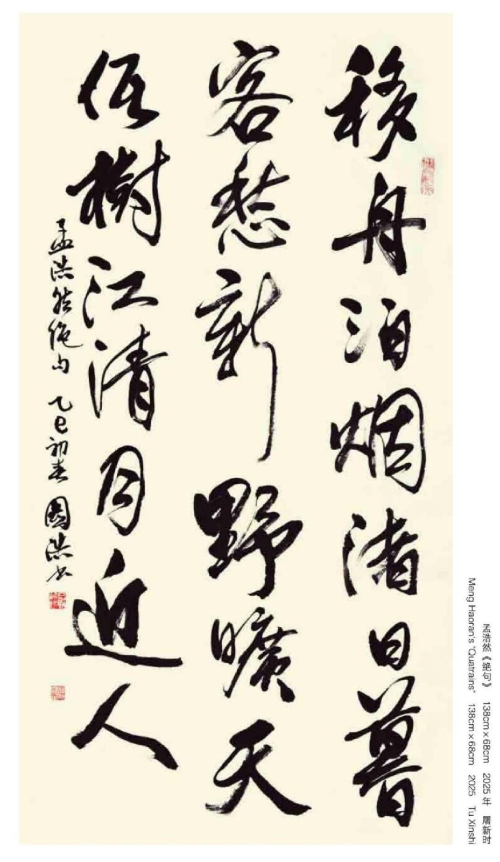 移舟泊烟渚日暮
客愁新野曠天
低樹江清月近人
孟浩然絶句 乙巳初春
孟浩然《绝句》 138cm×68cm 2025年 屠新时
Meng Haoran's "Quatrains" 138cm×68cm 2025 Tu Xinshi